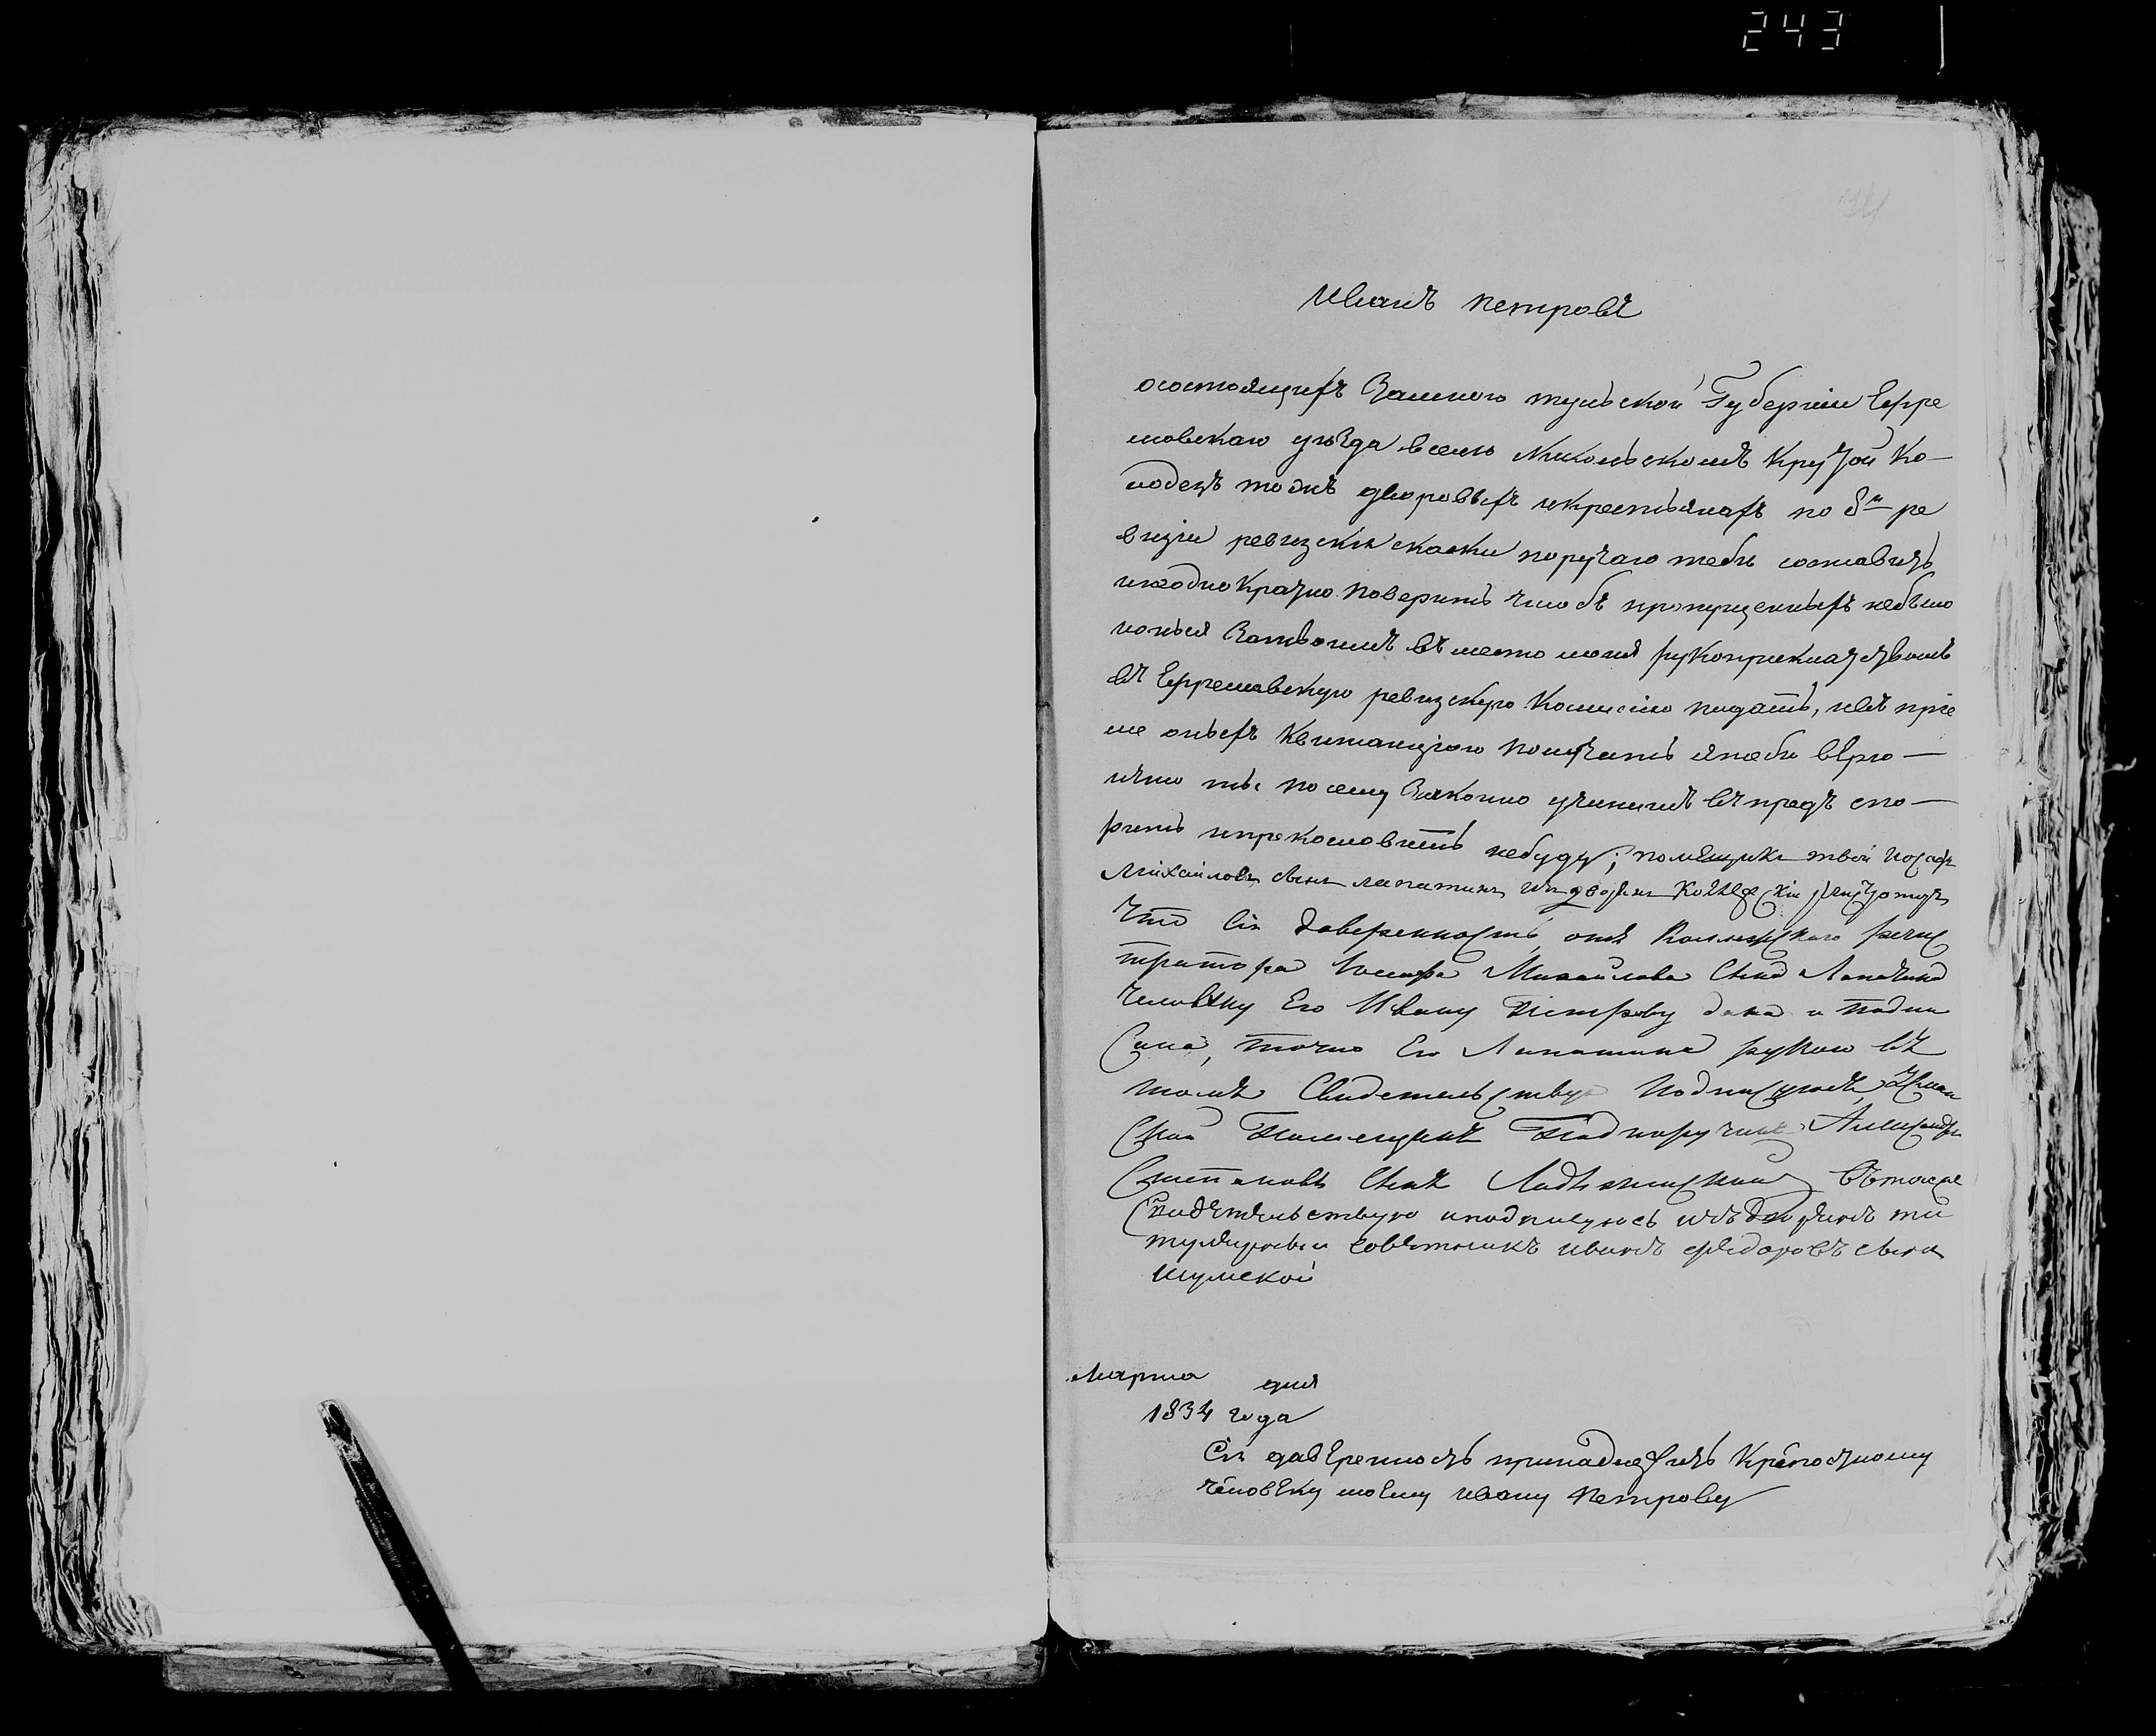 243
Иванъ петровъ
осостоящихъ Замною тульской Губерніи Ефре
мовскаго уезда вселе Никольскомъ Крутой Ко-
лодезь тожъ дворовыхъ икрестьянахъ по 8й ре
визіи ревизскія сказки поручаю тебе составить
инеоднократно поверить чтобъ пропущенныхъ небыло
коныя Затвоимъ въместо моия рукоприкладствомъ
въ Ефремавскую ревизскую Комисію подать, ивъ прие
ме оныхъ квитанцыю получить ятебе верю-
ичто ты посему Законно учинишъ въпредъ спо-
рить ипрекословить небуду; помещикъ твой Иосафъ
Михайловъ сынъ лапатинъ издворянъ Коллежскій регистраторъ
Что Сія доверенность отъ Коллежскаго регис
тратора Иосафа Михайлова Сына Лапатина
человеку Его Ивану Петрову дана и подпи
Сана, точно Его Лапатина рукою въ
томъ Свидетельствую подписуюсь
Помещикъ Подпоручикъ Александръ
Степановъ Сынъ въ томже
Свидетельствую иподписуюсь изъ дворянъ ти
тулярный советникъ иванъ федоровъ сынъ
Шумской
Марта дня
1834 года
Сія даверенность принадлежитъ Крепостному
человеку моему ивану петрову